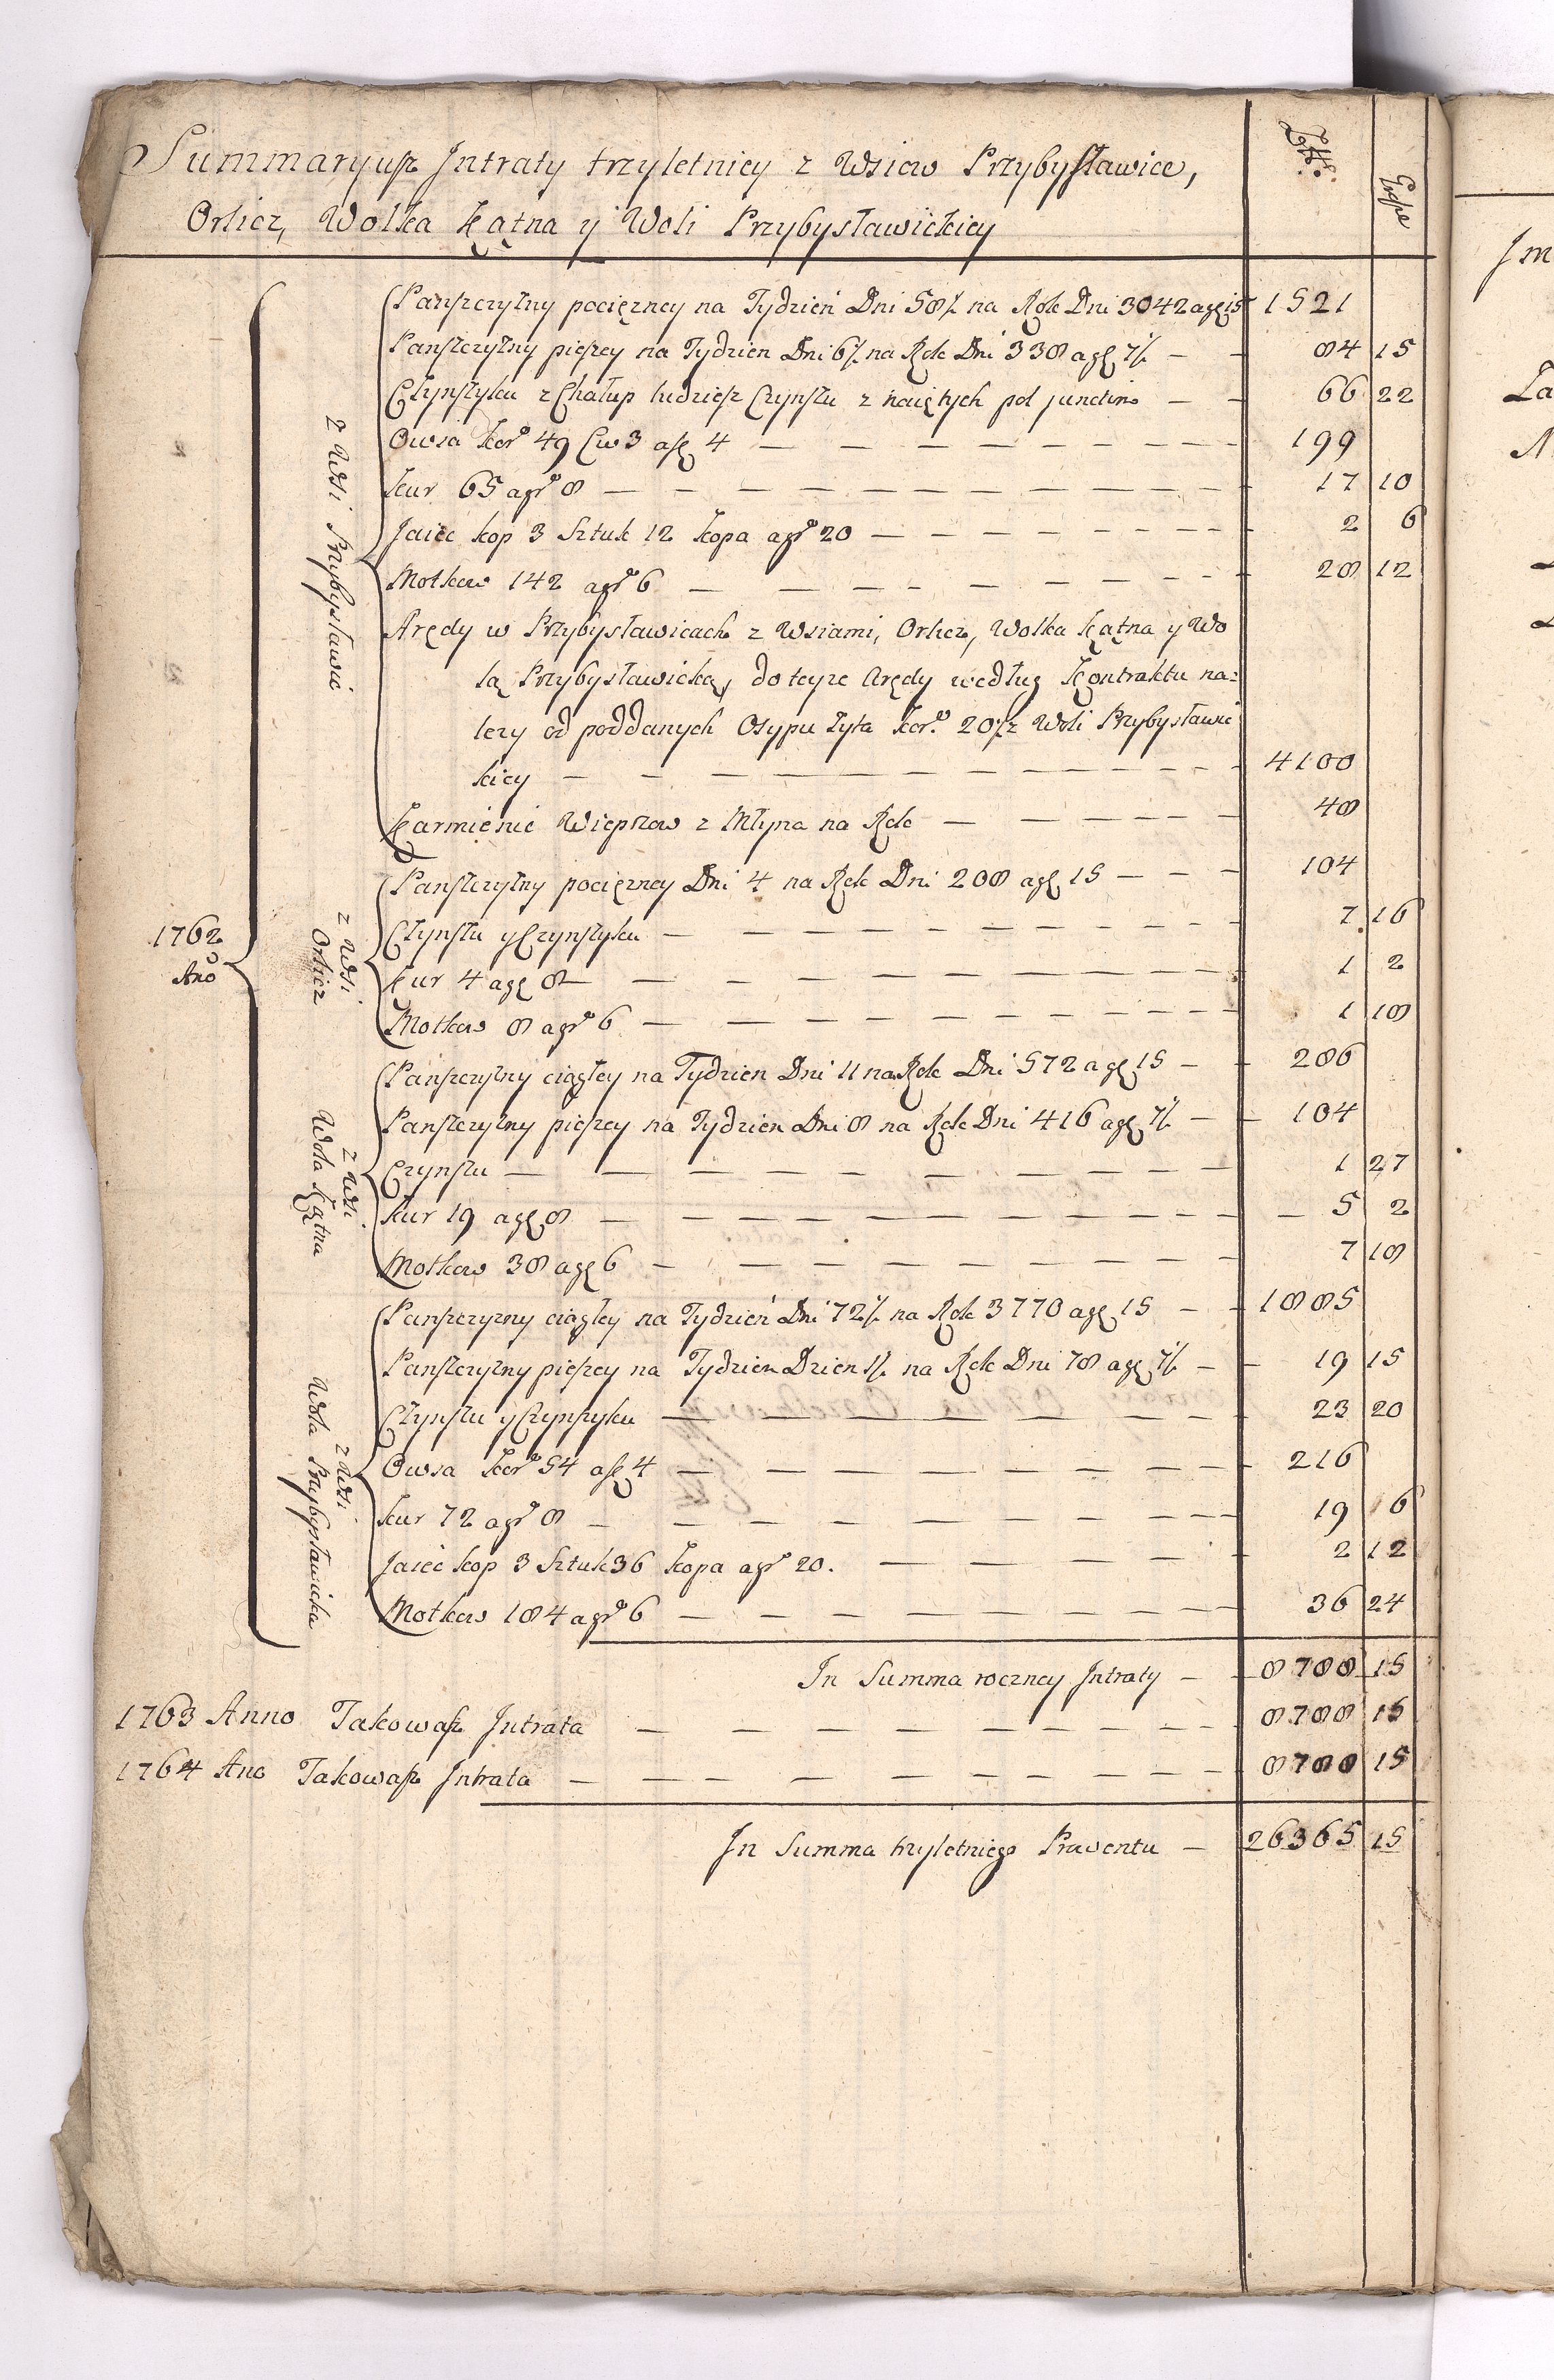 Summaryusz Jntraty trzyletniey z Wsiow Przybysławice, Złł: Grosze
Orlicz, Wolka Kątna y Woli Przybysławickiey
1762 Ano
z Wsi Przybysławic
Pańszczyzny pociężney na Tydzień Dni 58½ na Rok Dni 3042 a gr 15 1521
Pańszczyzny pieszey na Tydzien Dni 6½ na Rok Dni 338 a gr 7½ — 84 15
Czynszyku z Chałup tudziesz Czynszu z naiętych pol junctim — 66 22
Owsa Kor: 49 Cw 3 a fl 4 — 199
Kur 65 a gr 8 — 17 10
Jaiec kop 3 Sztuk 12 kopa a gr 20 — 2 6
Motkow 142 a gr 6 — 28 12
Arędy w Przybysławicach z Wsiami, Orlicz, Wolka Kątna y Wo
lą Przybysławicką, do teyze Arędy według Kontraktu na=
lezy od poddanych Osypu Zyta Kor: 20½ z Woli Przybysławic
kiey — 4100
Karmienie Wieprzow z Młyna na Rok — 48
z Wsi Orlicz
Pańszczyzny pociężney Dni 4 na Rok Dni 208 a gr 15 — 104
Czynszu y Czynszyku — 7 16
Kur 4 a gr 8 — 1 2
Motkow 8 a gr 6 — 1 18
z Wsi Wola Kątna
Pańszczyzny ciągłey na Tydzien Dni 11 na Rok Dni 572 a gr 15 — 286
Pańszczyzny pieszey na Tydzien Dni 8 na Rok Dni 416 a gr 7½ — 104
Czynszu — 1 27
Kur 19 a gr 8 — 5 2
Motkow 38 a gr 6 — 7 18
z Wsi Wola Przybysławicka
Pańszczyzny ciągłey na Tydzień Dni 72½ na Rok 3770 a gr 15 — 1885
Pańszczyzny pieszey na Tydzien Dzien 1½ na Rok Dni 78 a gr 7½ — 19 15
Czynszu y Czynszyku — 23 20
Owsa Kor: 54 a fl 4 — 216
Kur 72 a gr 8 — 19 6
Jaiec kop 3 Sztuk 36 kopa a gr 20. — 2 12
Motkow 184 a gr 6 — 36 24
Jn Summa roczney Jntraty — 8788 15
1763 Anno Takowasz Jntrata — 8788 15
1764 Ano Takowasz Jntrata — 8788 15
Jn Summa trzyletniego Prowentu — 26365 15